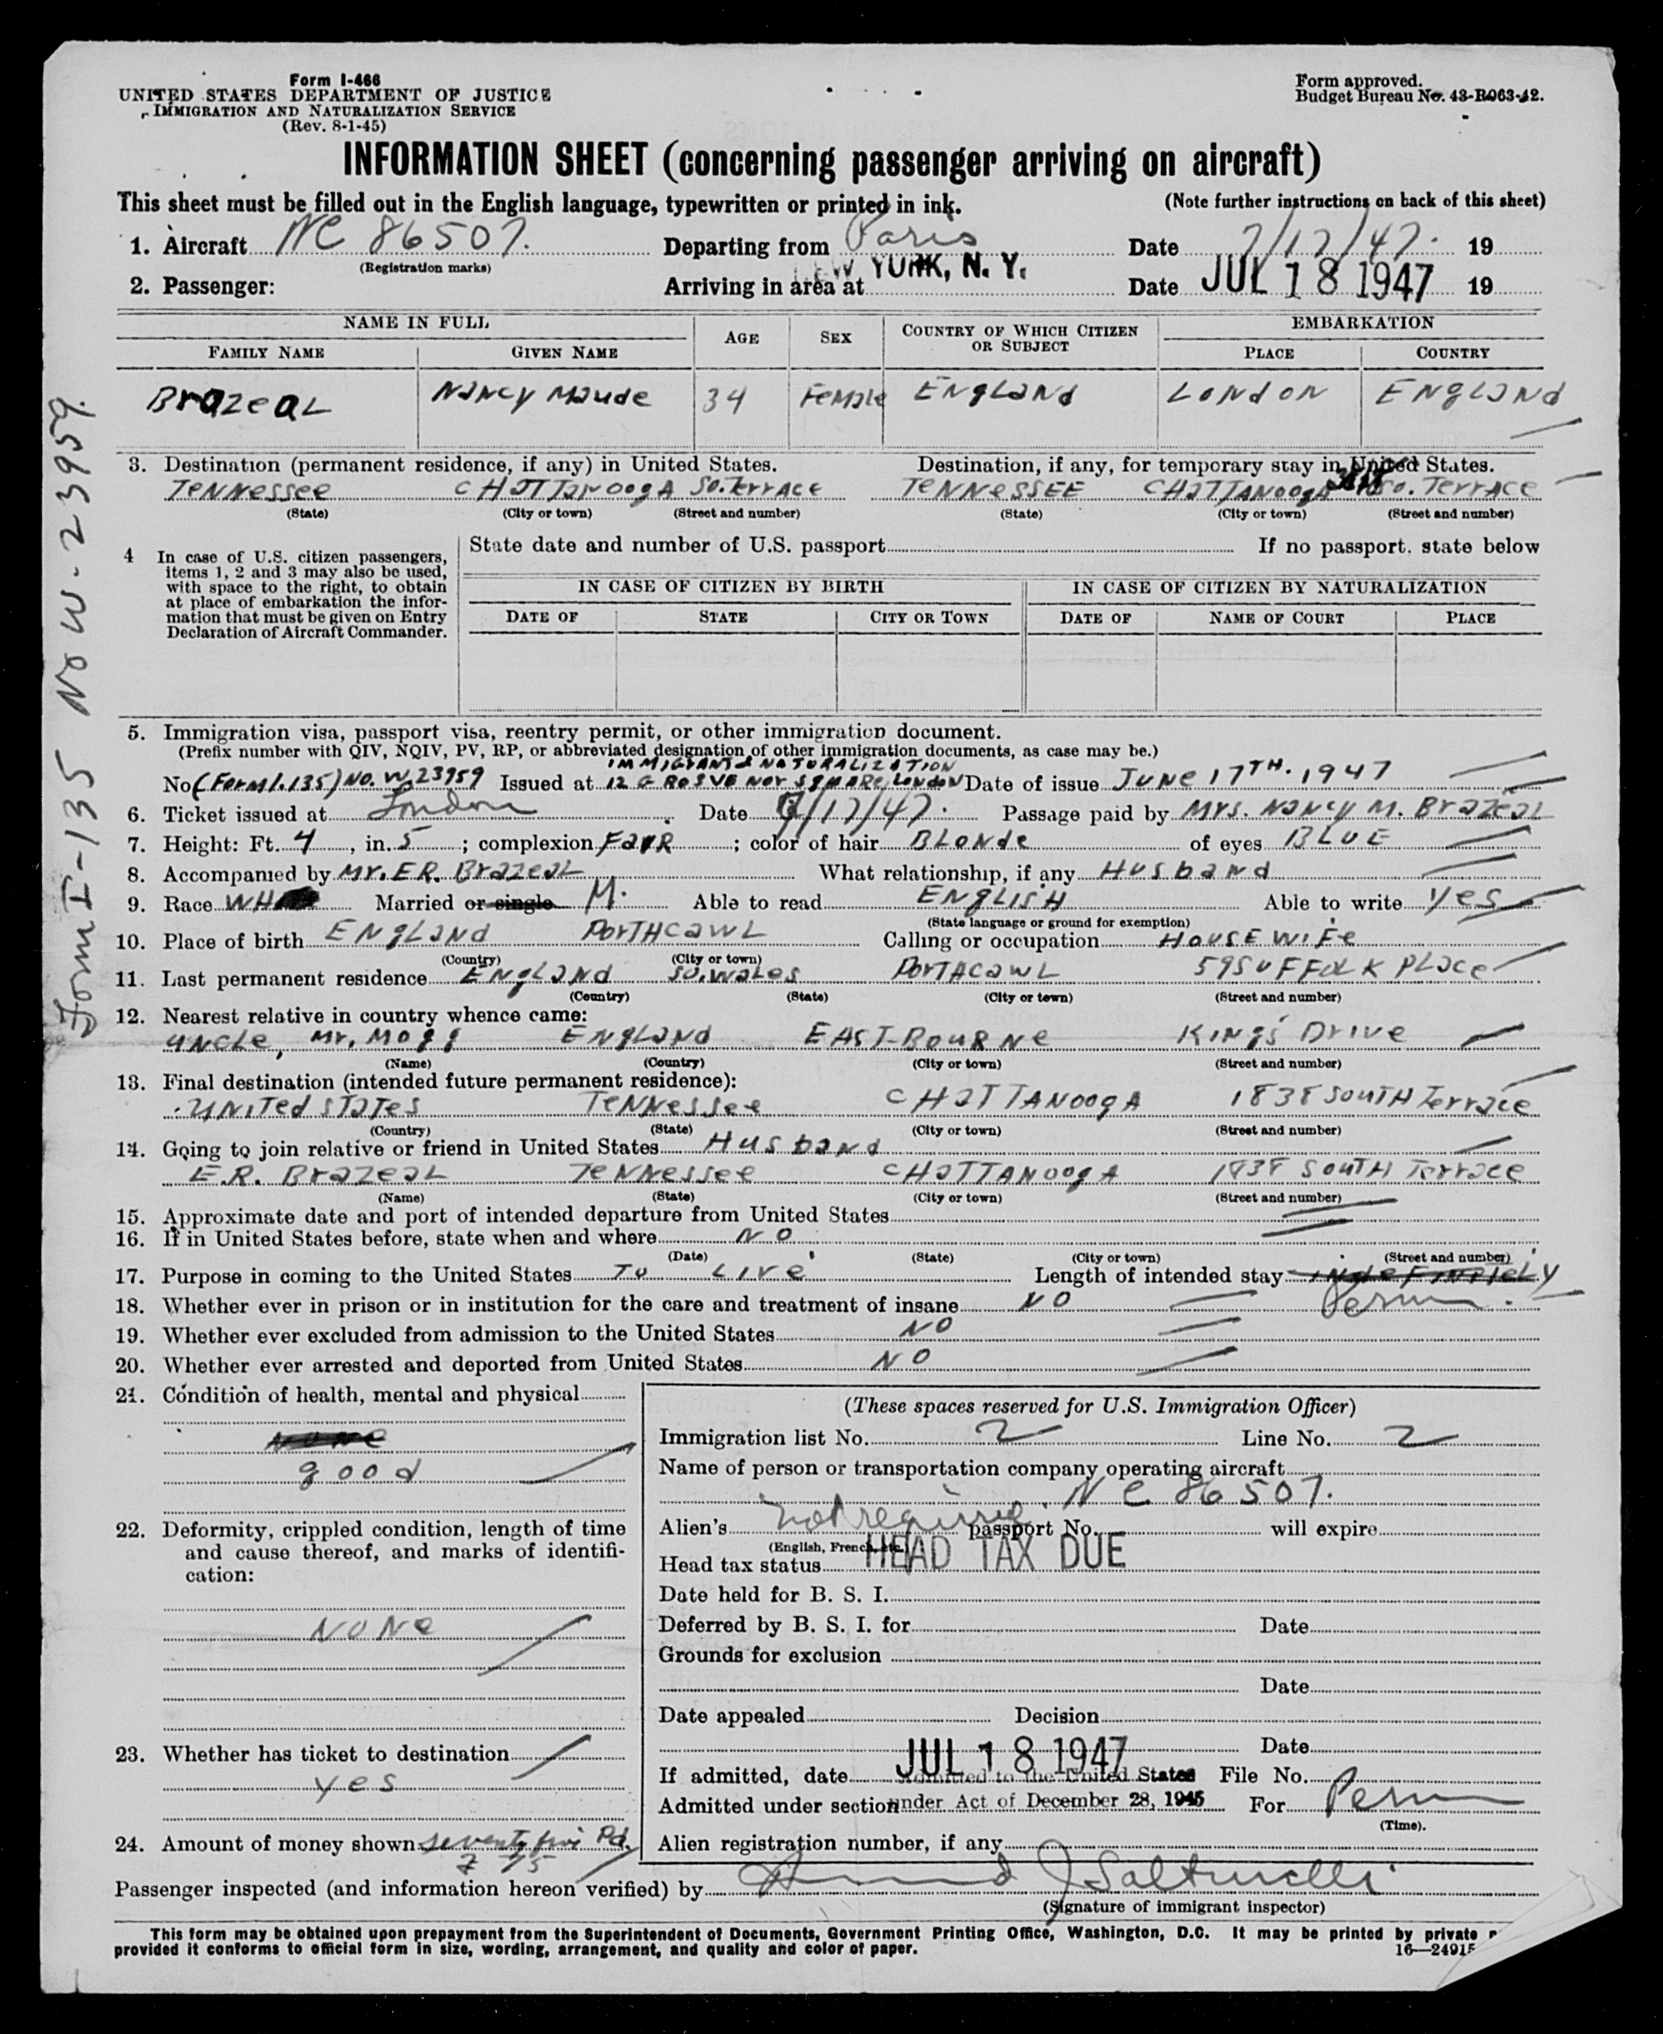 Form I-466
UNITED STATES DEPARTMENT OF JUSTICE
IMMIGRATION AND NATURALIZATION SERVICE
(Rev. 8-1-45)
Form approved.
Budget Bureau No. 43-R063-42.
INFORMATION SHEET (concerning passenger arriving on aircraft)
This sheet must be filled out in the English language, typewritten or printed in ink. (Note further instructions on back of this sheet)
1. Aircraft NC 86507. Departing from Paris Date 7/17/47. 19
(Registration marks)
2. Passenger: Arriving in area at NEW YORK, N. Y. Date JUL 18 1947 19
NAME IN FULL AGE SEX COUNTRY OF WHICH CITIZEN OR SUBJECT EMBARKATION
FAMILY NAME GIVEN NAME PLACE COUNTRY
Brazeal Nancy Maude 34 Female England London England
3. Destination (permanent residence, if any) in United States. Destination, if any, for temporary stay in United States.
Tennessee CHATTANOOGA So. Terrace TENNESSEE CHATTANOOGA So. Terrace
(State) (City or town) (Street and number) (State) (City or town) (Street and number)
4 In case of U.S. citizen passengers, items 1, 2 and 3 may also be used, with space to the right, to obtain at place of embarkation the information that must be given on Entry Declaration of Aircraft Commander.
State date and number of U.S. passport If no passport, state below
IN CASE OF CITIZEN BY BIRTH IN CASE OF CITIZEN BY NATURALIZATION
DATE OF STATE CITY OR TOWN DATE OF NAME OF COURT PLACE
5. Immigration visa, passport visa, reentry permit, or other immigration document.
(Prefix number with QIV, NQIV, PV, RP, or abbreviated designation of other immigration documents, as case may be.)
IMMIGRANT & NATURALIZATION
No (Form I.135) No. W.23959 Issued at 12 GROSVENOR SQUARE, London Date of issue JUNE 17TH. 1947
6. Ticket issued at London Date 7/17/47. Passage paid by Mrs. Nancy M. Brazeal
7. Height: Ft. 4, in. 5; complexion FAIR; color of hair BLONde of eyes BLUE
8. Accompanied by Mr. E.R. Brazeal What relationship, if any Husband
9. Race WH Married or single M. Able to read ENGLISH Able to write yes
(State language or ground for exemption)
10. Place of birth ENGLAND PORTHCAWL Calling or occupation HOUSEWIFE
(Country) (City or town)
11. Last permanent residence ENGLAND So. Wales PORTHCAWL 59 SUFFOLK PLACE
(Country) (State) (City or town) (Street and number)
12. Nearest relative in country whence came:
uncle, Mr. Mogg ENGLAND EAST-BOURNE KINGS DRIVE
(Name) (Country) (City or town) (Street and number)
13. Final destination (intended future permanent residence):
UNITed STATES TENNESSEE CHATTANOOGA 1838 SOUTH Terrace
(Country) (State) (City or town) (Street and number)
14. Going to join relative or friend in United States Husband
E.R. Brazeal TENNESSEE CHATTANOOGA 1838 SOUTH Terrace
(Name) (State) (City or town) (Street and number)
15. Approximate date and port of intended departure from United States
16. If in United States before, state when and where NO
(Date) (State) (City or town) (Street and number)
17. Purpose in coming to the United States To Live Length of intended stay INdeFINITELY
18. Whether ever in prison or in institution for the care and treatment of insane NO Perm.
19. Whether ever excluded from admission to the United States NO
20. Whether ever arrested and deported from United States NO
21. Condition of health, mental and physical
None
good
22. Deformity, crippled condition, length of time and cause thereof, and marks of identification:
NoNe
23. Whether has ticket to destination
yes
24. Amount of money shown seventy five Pd.
£ 75
(These spaces reserved for U.S. Immigration Officer)
Immigration list No. 2 Line No. 2
Name of person or transportation company operating aircraft
NC 86507.
Alien's not required passport No. will expire
(English, French, etc.)
Head tax status HEAD TAX DUE
Date held for B. S. I.
Deferred by B. S. I. for Date
Grounds for exclusion
Date
Date appealed Decision
Date
If admitted, date JUL 18 1947 Admitted to the United States File No.
Admitted under section under Act of December 28, 1945 For Perm
(Time).
Alien registration number, if any
Passenger inspected (and information hereon verified) by
(Signature of immigrant inspector)
This form may be obtained upon prepayment from the Superintendent of Documents, Government Printing Office, Washington, D.C. It may be printed by private
provided it conforms to official form in size, wording, arrangement, and quality and color of paper. 16—24915
Form I-135 No W-23959.